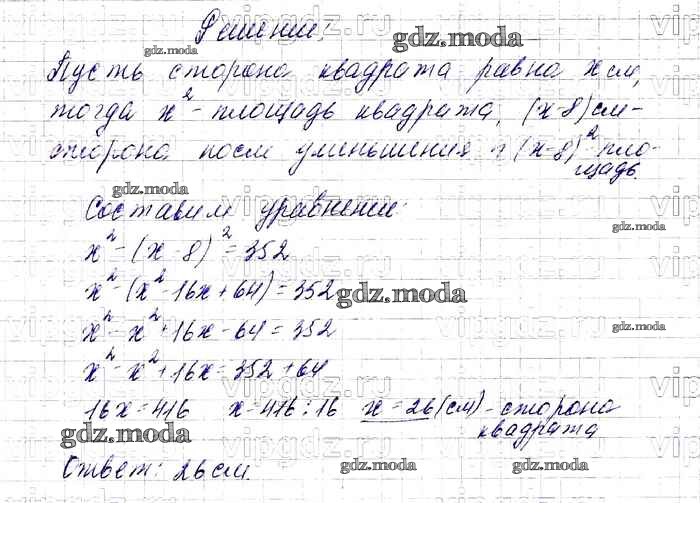 Решение:
Пусть сторона квадрата равна x см,
тогда x² - площадь квадрата, (x-8) см -
сторона после уменьшения и (x-8)² пло-
щадь.
Составим уравнение:
x² - (x-8)² = 352
x² - (x² - 16x + 64) = 352
x² - x² + 16x - 64 = 352
x² - x² + 16x = 352 + 64
16x = 416 x = 416 : 16 x = 26 (см) - сторона
квадрата
Ответ: 26 см.
gdz.moda
gdz.moda
gdz.moda
gdz.moda
gdz.moda
gdz.moda
gdz.moda
gdz.moda
gdz.moda
vipgdz.ru